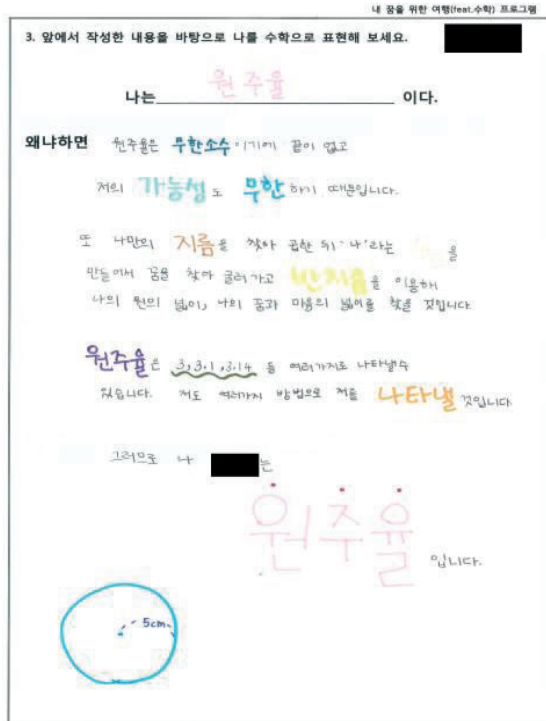 내 꿈을 위한 여행(feat.수학) 프로그램
3. 앞에서 작성한 내용을 바탕으로 나를 수학으로 표현해 보세요.
나는 원주율 이다.
왜냐하면 원주율은 무한소수이기에 끝이 없고
저의 가능성도 무한하기 때문입니다.
또 나만의 지름을 찾아 곱한 뒤 '나'라는 을
만들어서 꿈을 찾아 굴러가고 반지름을 이용해
나의 원의 넓이, 나의 꿈과 마음의 넓이를 찾을 것입니다
원주율은 3, 3.1, 3.14 등 여러가지로 나타낼수
있습니다. 저도 여러가지 방법으로 저를 나타낼 것입니다
그러므로 나 는
원주율 입니다.
5cm